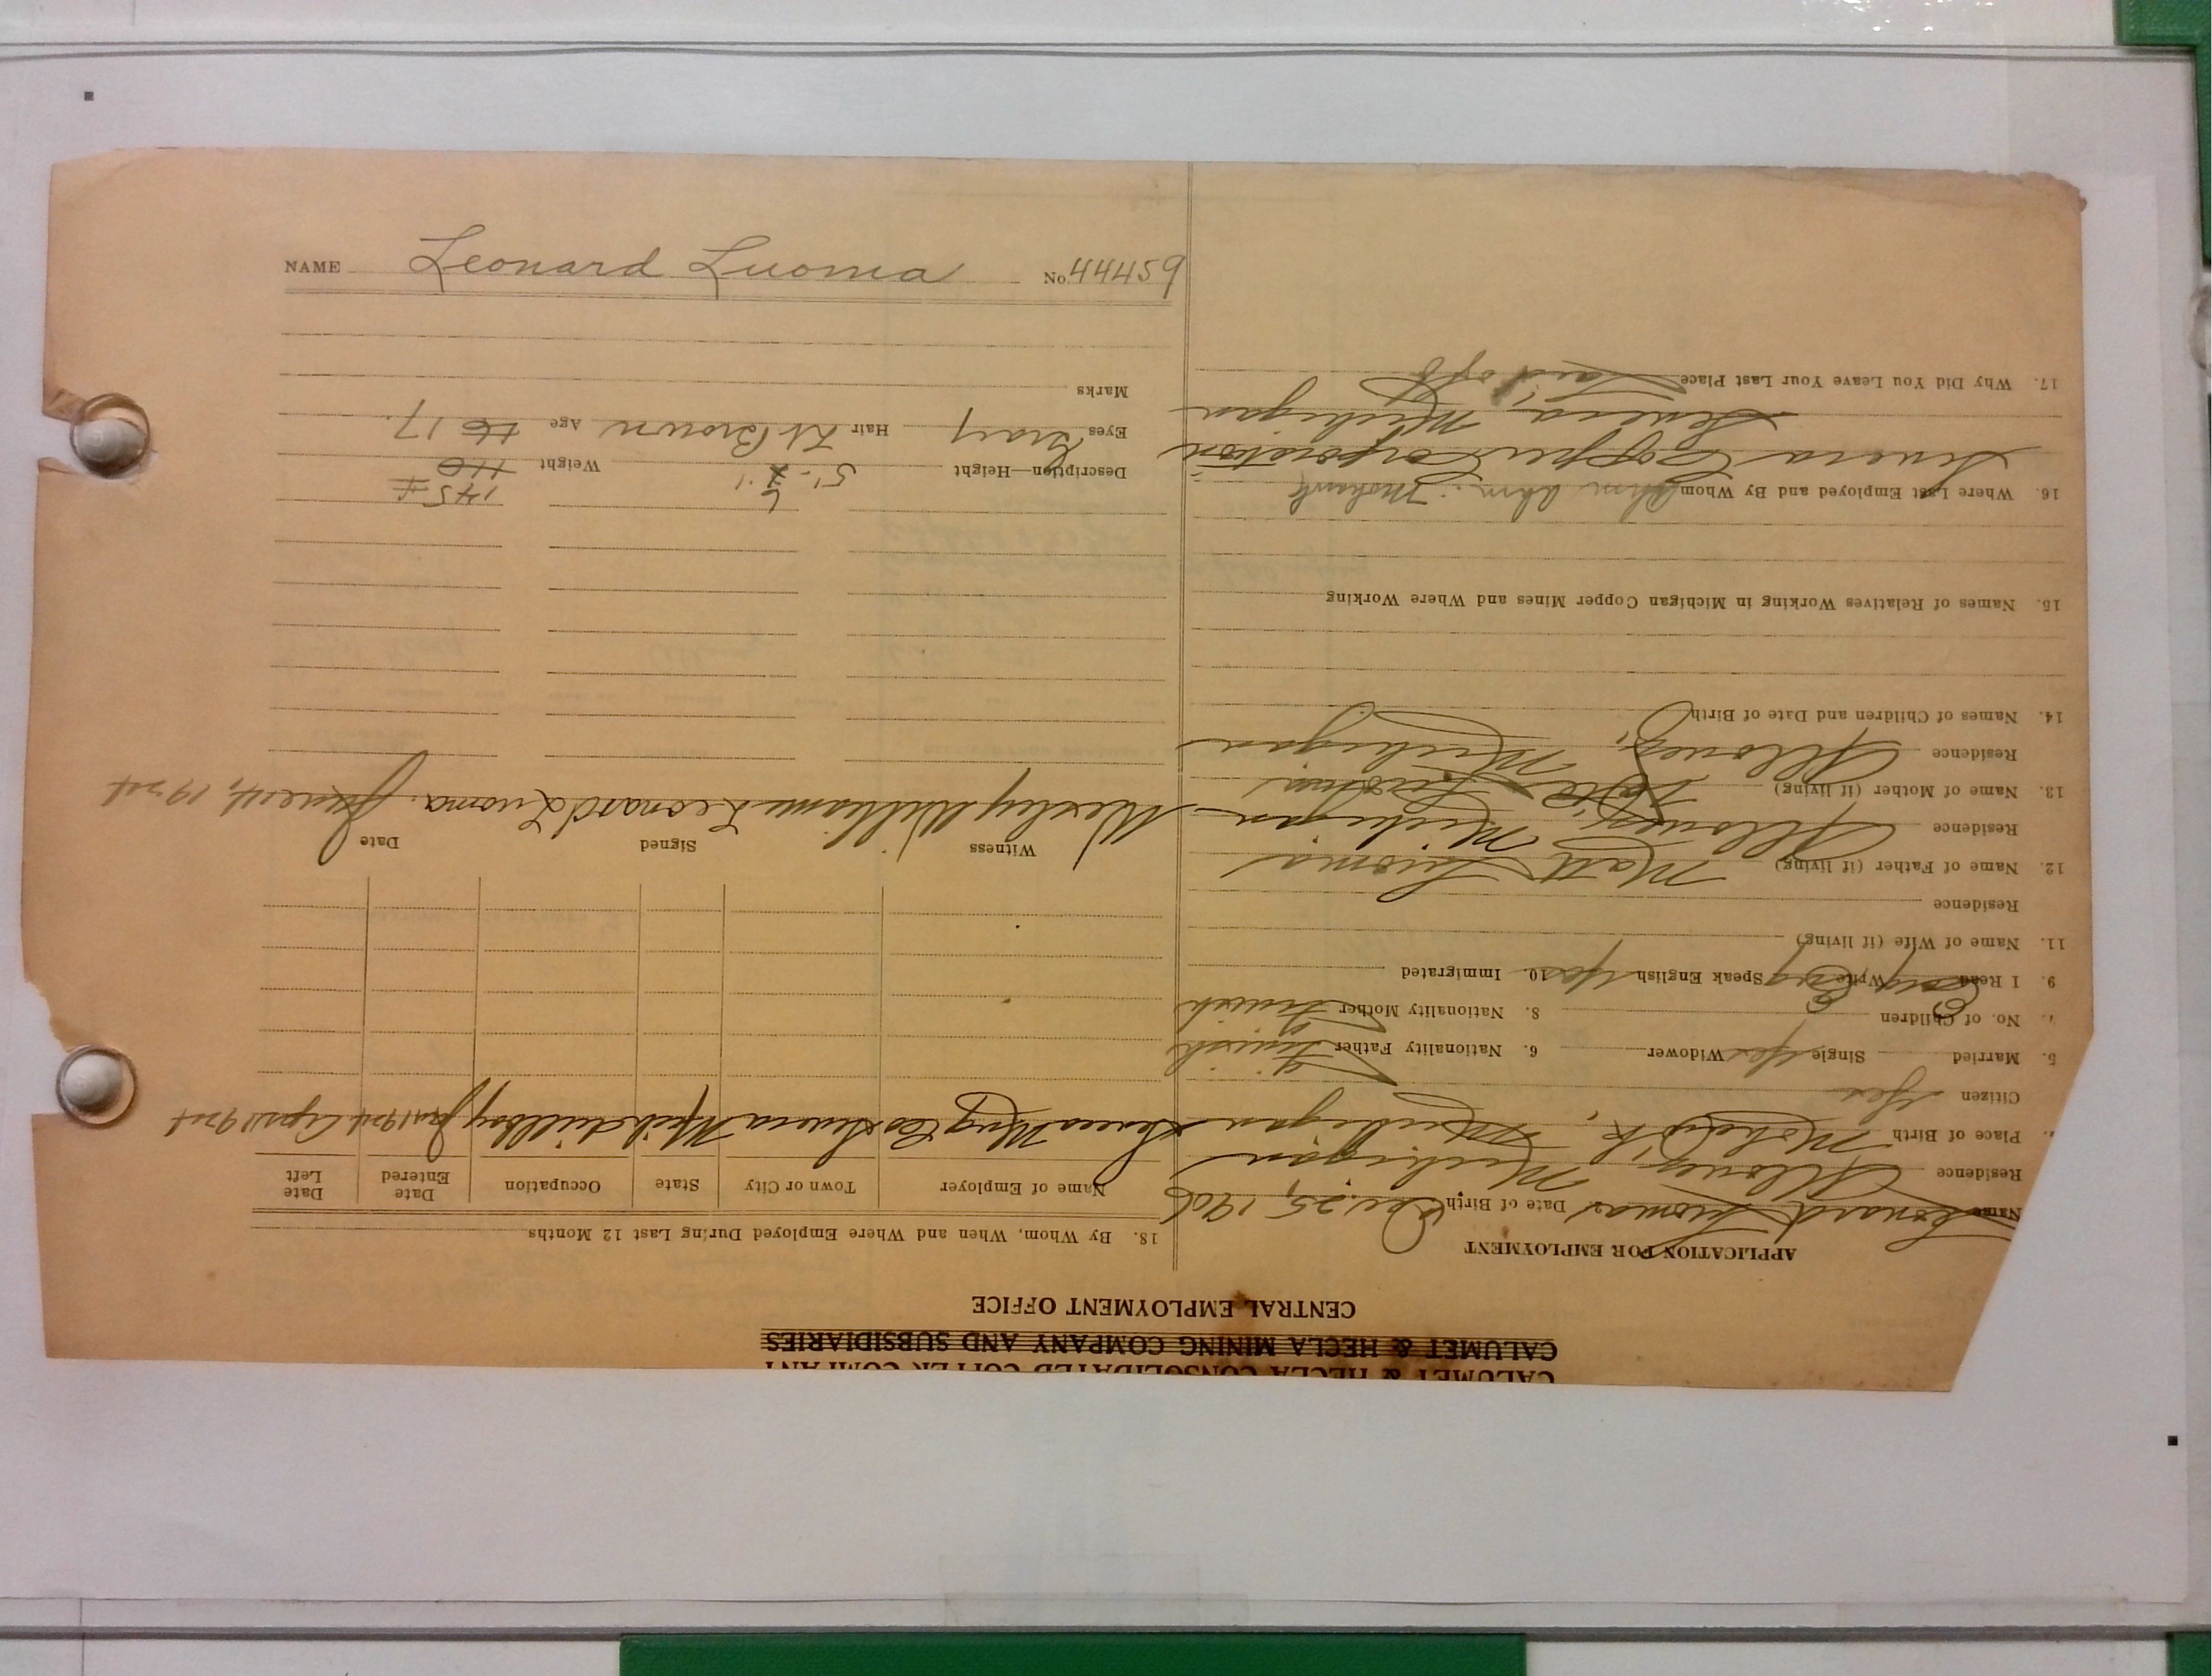 CALUMET & HECLA CONSOLIDATED COPPER COMPANY
CALUMET & HECLA MINING COMPANY AND SUBSIDIARIES
CENTRAL EMPLOYMENT OFFICE
APPLICATION FOR EMPLOYMENT
Name Leonard Luoma 2. Date of Birth Dec. 25, 1906
Residence Allouez, Michigan
Place of Birth Mohawk, Michigan
Citizen Yes
5. Married Single Yes Widower 6. Nationality Father Finnish
7. No. of Children 8. Nationality Mother Finnish
9. I Read Eng Write Eng Speak English Yes 10. Immigrated
11. Name of Wife (if living)
Residence
12. Name of Father (if living) Matt Luoma
Residence Allouez, Michigan
13. Name of Mother (if living) Luoma
Residence Allouez, Michigan
14. Names of Children and Date of Birth
15. Names of Relatives Working in Michigan Copper Mines and Where Working
16. Where Last Employed and By Whom Ahm. Mohawk
Seneca Copper Corporation
Seneca, Michigan
17. Why Did You Leave Your Last Place Laid off
18. By Whom, When and Where Employed During Last 12 Months
Name of Employer Town or City State Occupation Date Entered Date Left
Seneca Mng Co Seneca Mich drillboy Jan 1924 April 1924
Witness Signed Date
Wesley Williams Leonard Luoma. June 4, 1924
6 145 #
Description—Height 5'-7" Weight 110
Eyes Gray Hair Lt Brown Age 16 17.
Marks
NAME Leonard Luoma No. 44459